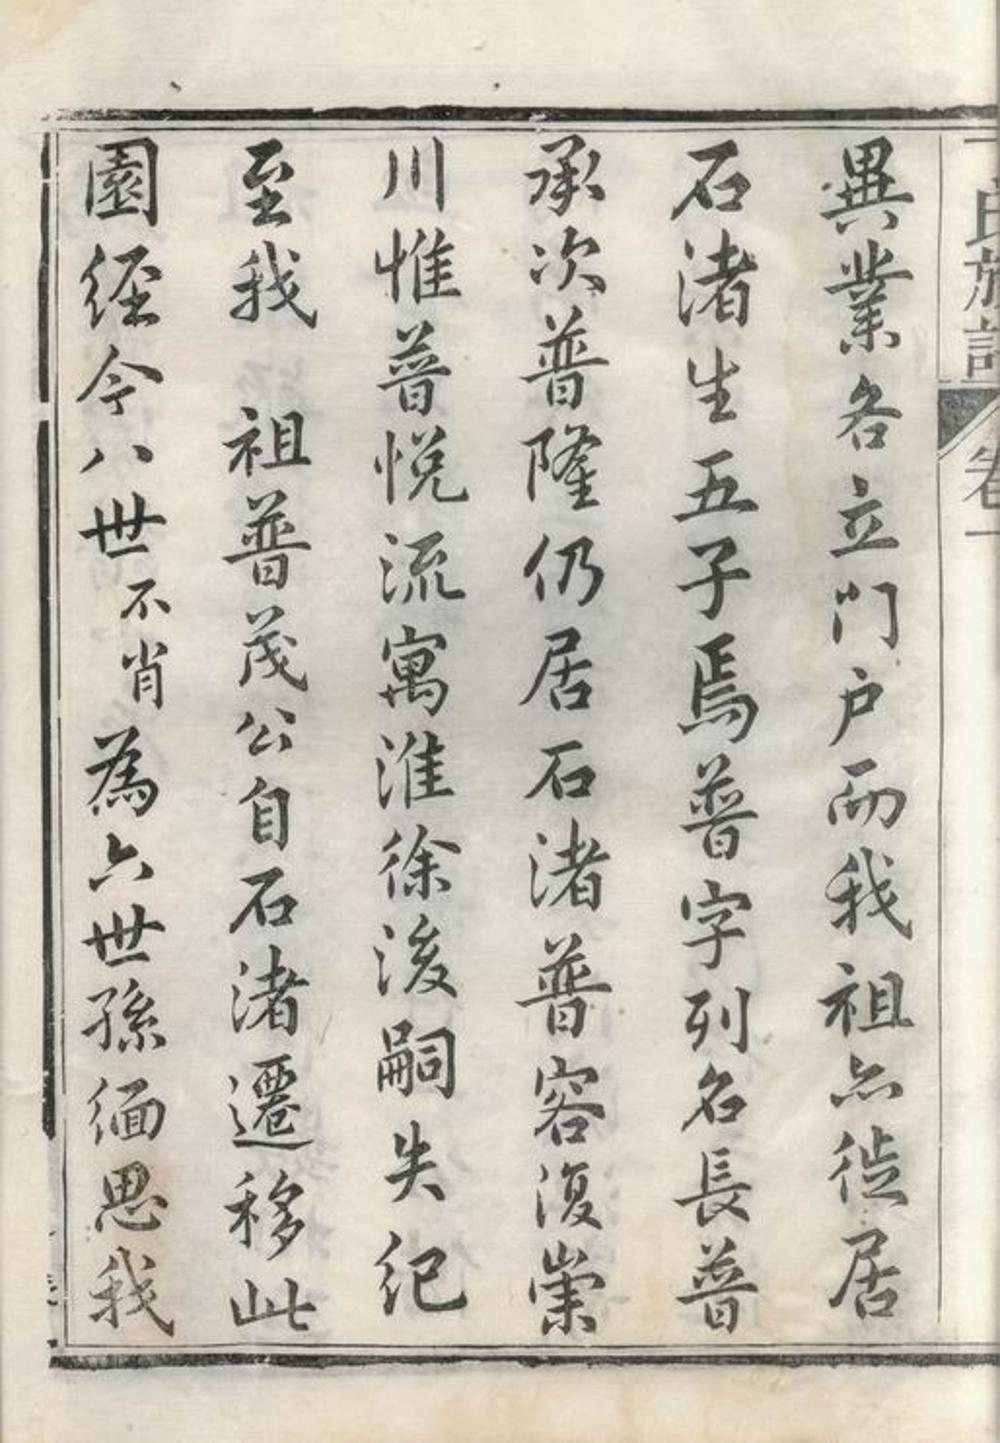 氏族譜 卷一
異業各立門户而我祖亦徙居
石渚生五子焉普字列名長普
承次普隆仍居石渚普容復崇
川惟普悦流寓淮徐浚嗣失紀
至我 祖普茂公自石渚遷移此
園經今八世不肖為六世孫緬思我